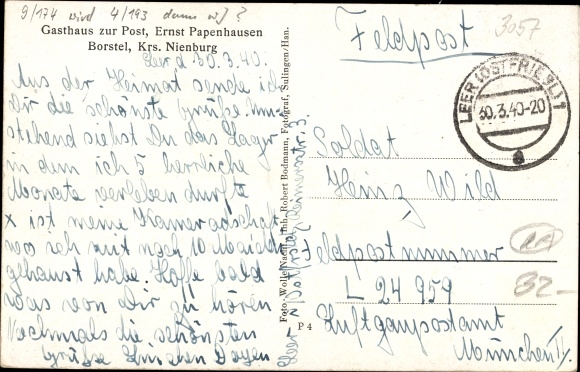 9/174 wird 4/193 dann wj?
Gasthaus zur Post, Ernst Papenhausen
Borstel, Krs. Nienburg
Leer d. 30.3.40.
Aus der Heimat sende ich
Dir die schönste Grüße. Um-
stehend siehst Du das Lager
in dem ich 5 herrliche
Monate verleben durfte
x ist meine Kameradschaft
wo ich mit noch 10 Maiden
gehaust habe. Hoffe bald
was von Dir zu hören
Nochmals die schönsten
Grüße
Foto-Wolle Nachf. Inh. Robert Bodmann, Fotograf, Sulingen/Han.
P 4
Leer
Feldpost
3057
LEER (OSTFRIESL) 1
30.3.40-20
a
Soldat
Heinz Wild
Feldpostnummer
L 24 959
Luftgaupostamt
München II
32-